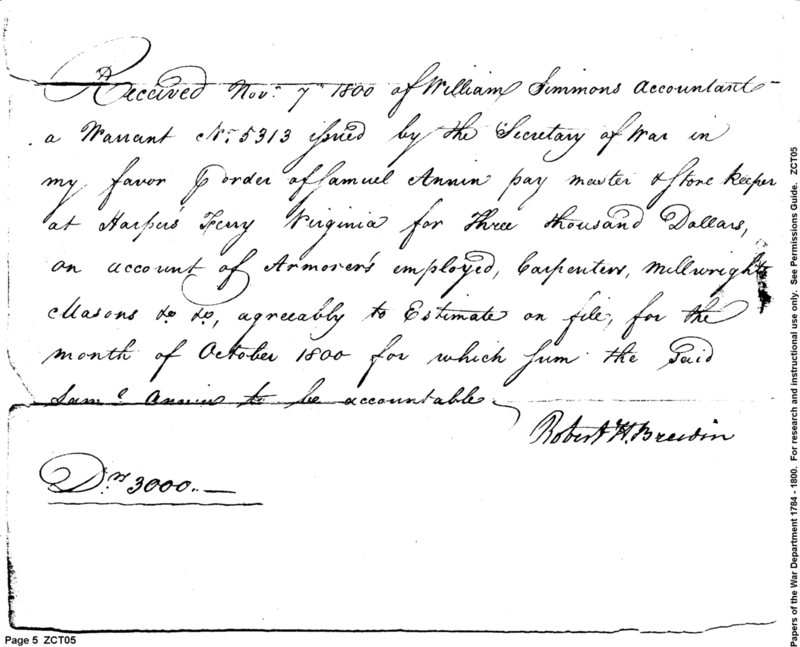 Received Novr. 7th 1800 of William Simmons Accountant
a Warrant No. 5313 issued by the Secretary of War in
my favor ⅌ order of Samuel Annin pay master & Store Keeper
at Harper's Ferry Virginia for Three thousand Dollars,
on account of Armorer's employed, Carpenters, Millwrights
Masons &c. &c., agreeably to Estimate on file, for the
month of October 1800 for which sum the Said
Saml. Annin to be accountable.
Robert H.
Drs. 3000..—
Page 5 ZCT05
Papers of the War Department 1784 - 1800. For research and instructional use only. See Permissions Guide. ZCT05